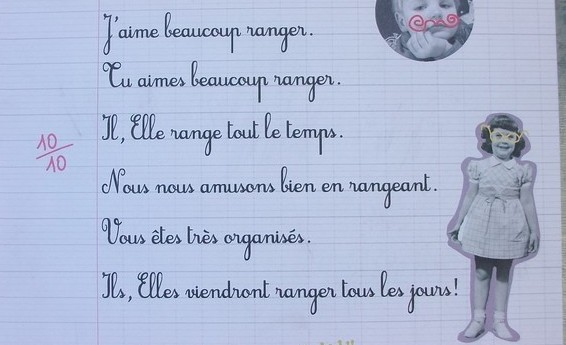 J'aime beaucoup ranger.
Tu aimes beaucoup ranger.
Il, Elle range tout le temps.
10
10
Nous nous amusons bien en rangeant.
Vous êtes très organisés.
Ils, Elles viendront ranger tous les jours!